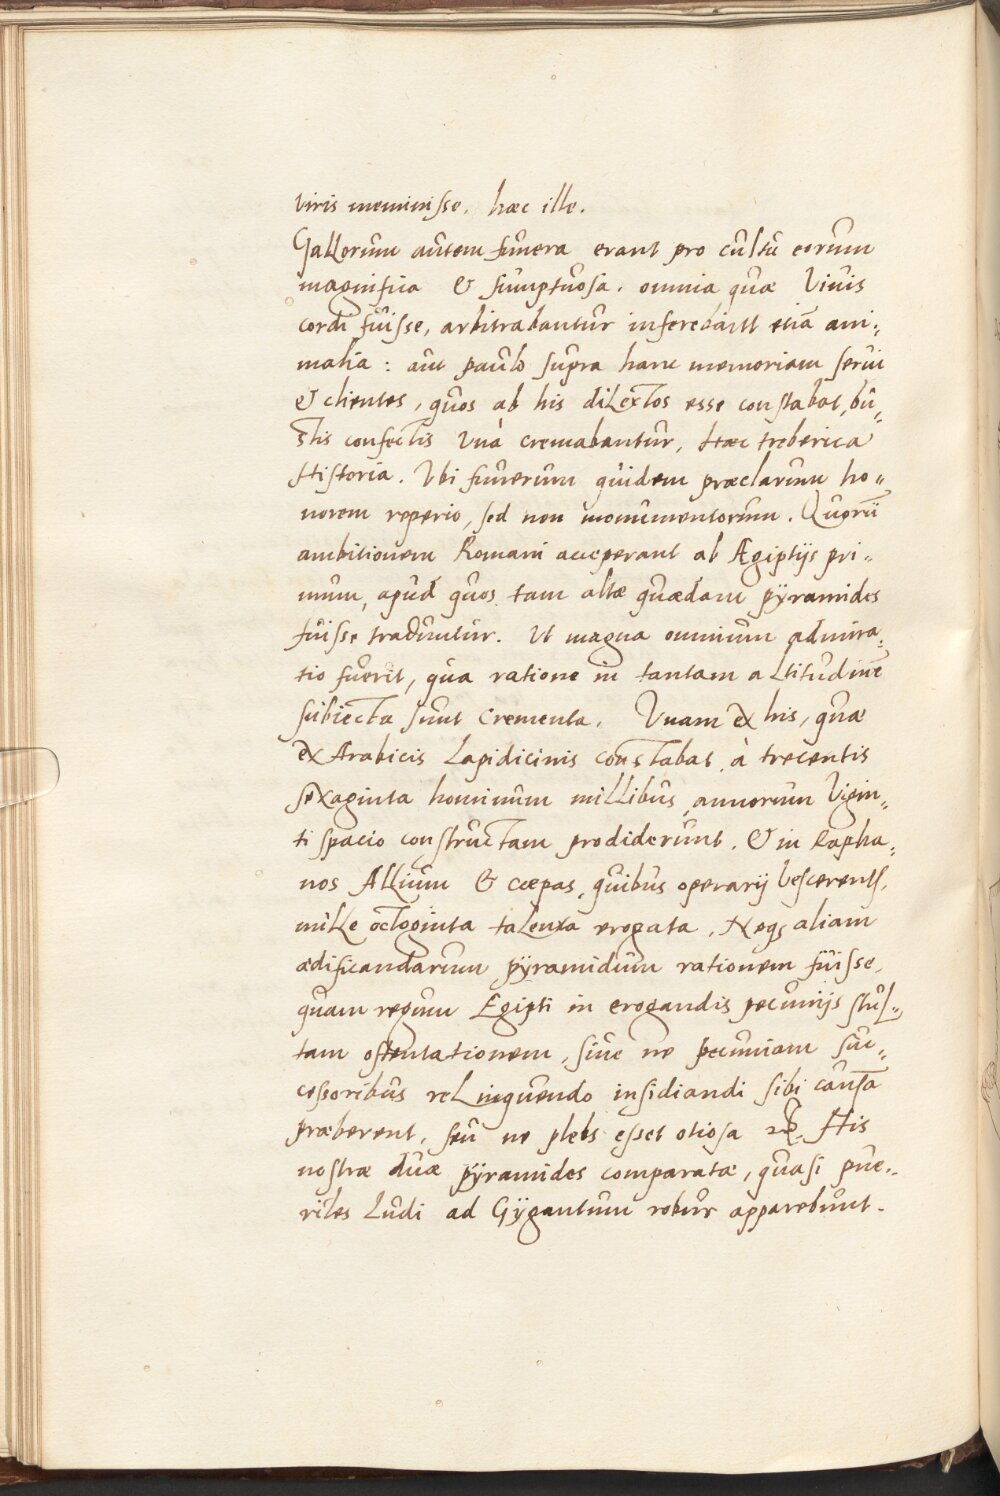 viris meminisse. hæc ille.
Gallorum autem funera erant pro cultu eorum
magnifica & sumptuosa. omnia quæ Vivis
cordi fuisse, arbitrabantur inferebantt etiā ani„
malia: aut paulo supra hanc memoriam servi
& clientes, quos ab his dilectos esse constabat, bu„
stis confectis Vnà cremabantur, Hæc treberica
Historia. Vbi funerum quidem præclarum ho„
norem reperio, sed non monumentorum. Quorū
ambitionem Romani acceperant ab Ægiptijs pri„
mum, apud quos tam altæ quædam pÿramides
fuisse traduntur. Vt magna omnium admira„
tio fuerit, qua ratione in tantam altitudinē
subiecta sunt Crementa. Vnam ex his, quæ
ex Arabicis Lapidicinis constabat, à trecentis
sexaginta hominum millibus, annorum Vigin„
ti spacio constructam prodiderunt. & in Rapha„
nos Allium & cæpas, quibus operarij vescerentʃ,
mille octoginta talenta erogata, Neqʒ aliam
ædificandarum pÿramidum rationem fuisse,
quam regum Egipti in erogandis pecunijs stul„
tam ostentationem, sive ne pecuniam suc„
cessoribus relinquendo insidiandi sibi causā
præberent, seu ne plebs esset otiosa His
nostræ duæ pÿramides comparatæ, quasi pue„
riles Ludi ad Gÿgantum robur apparebunt.